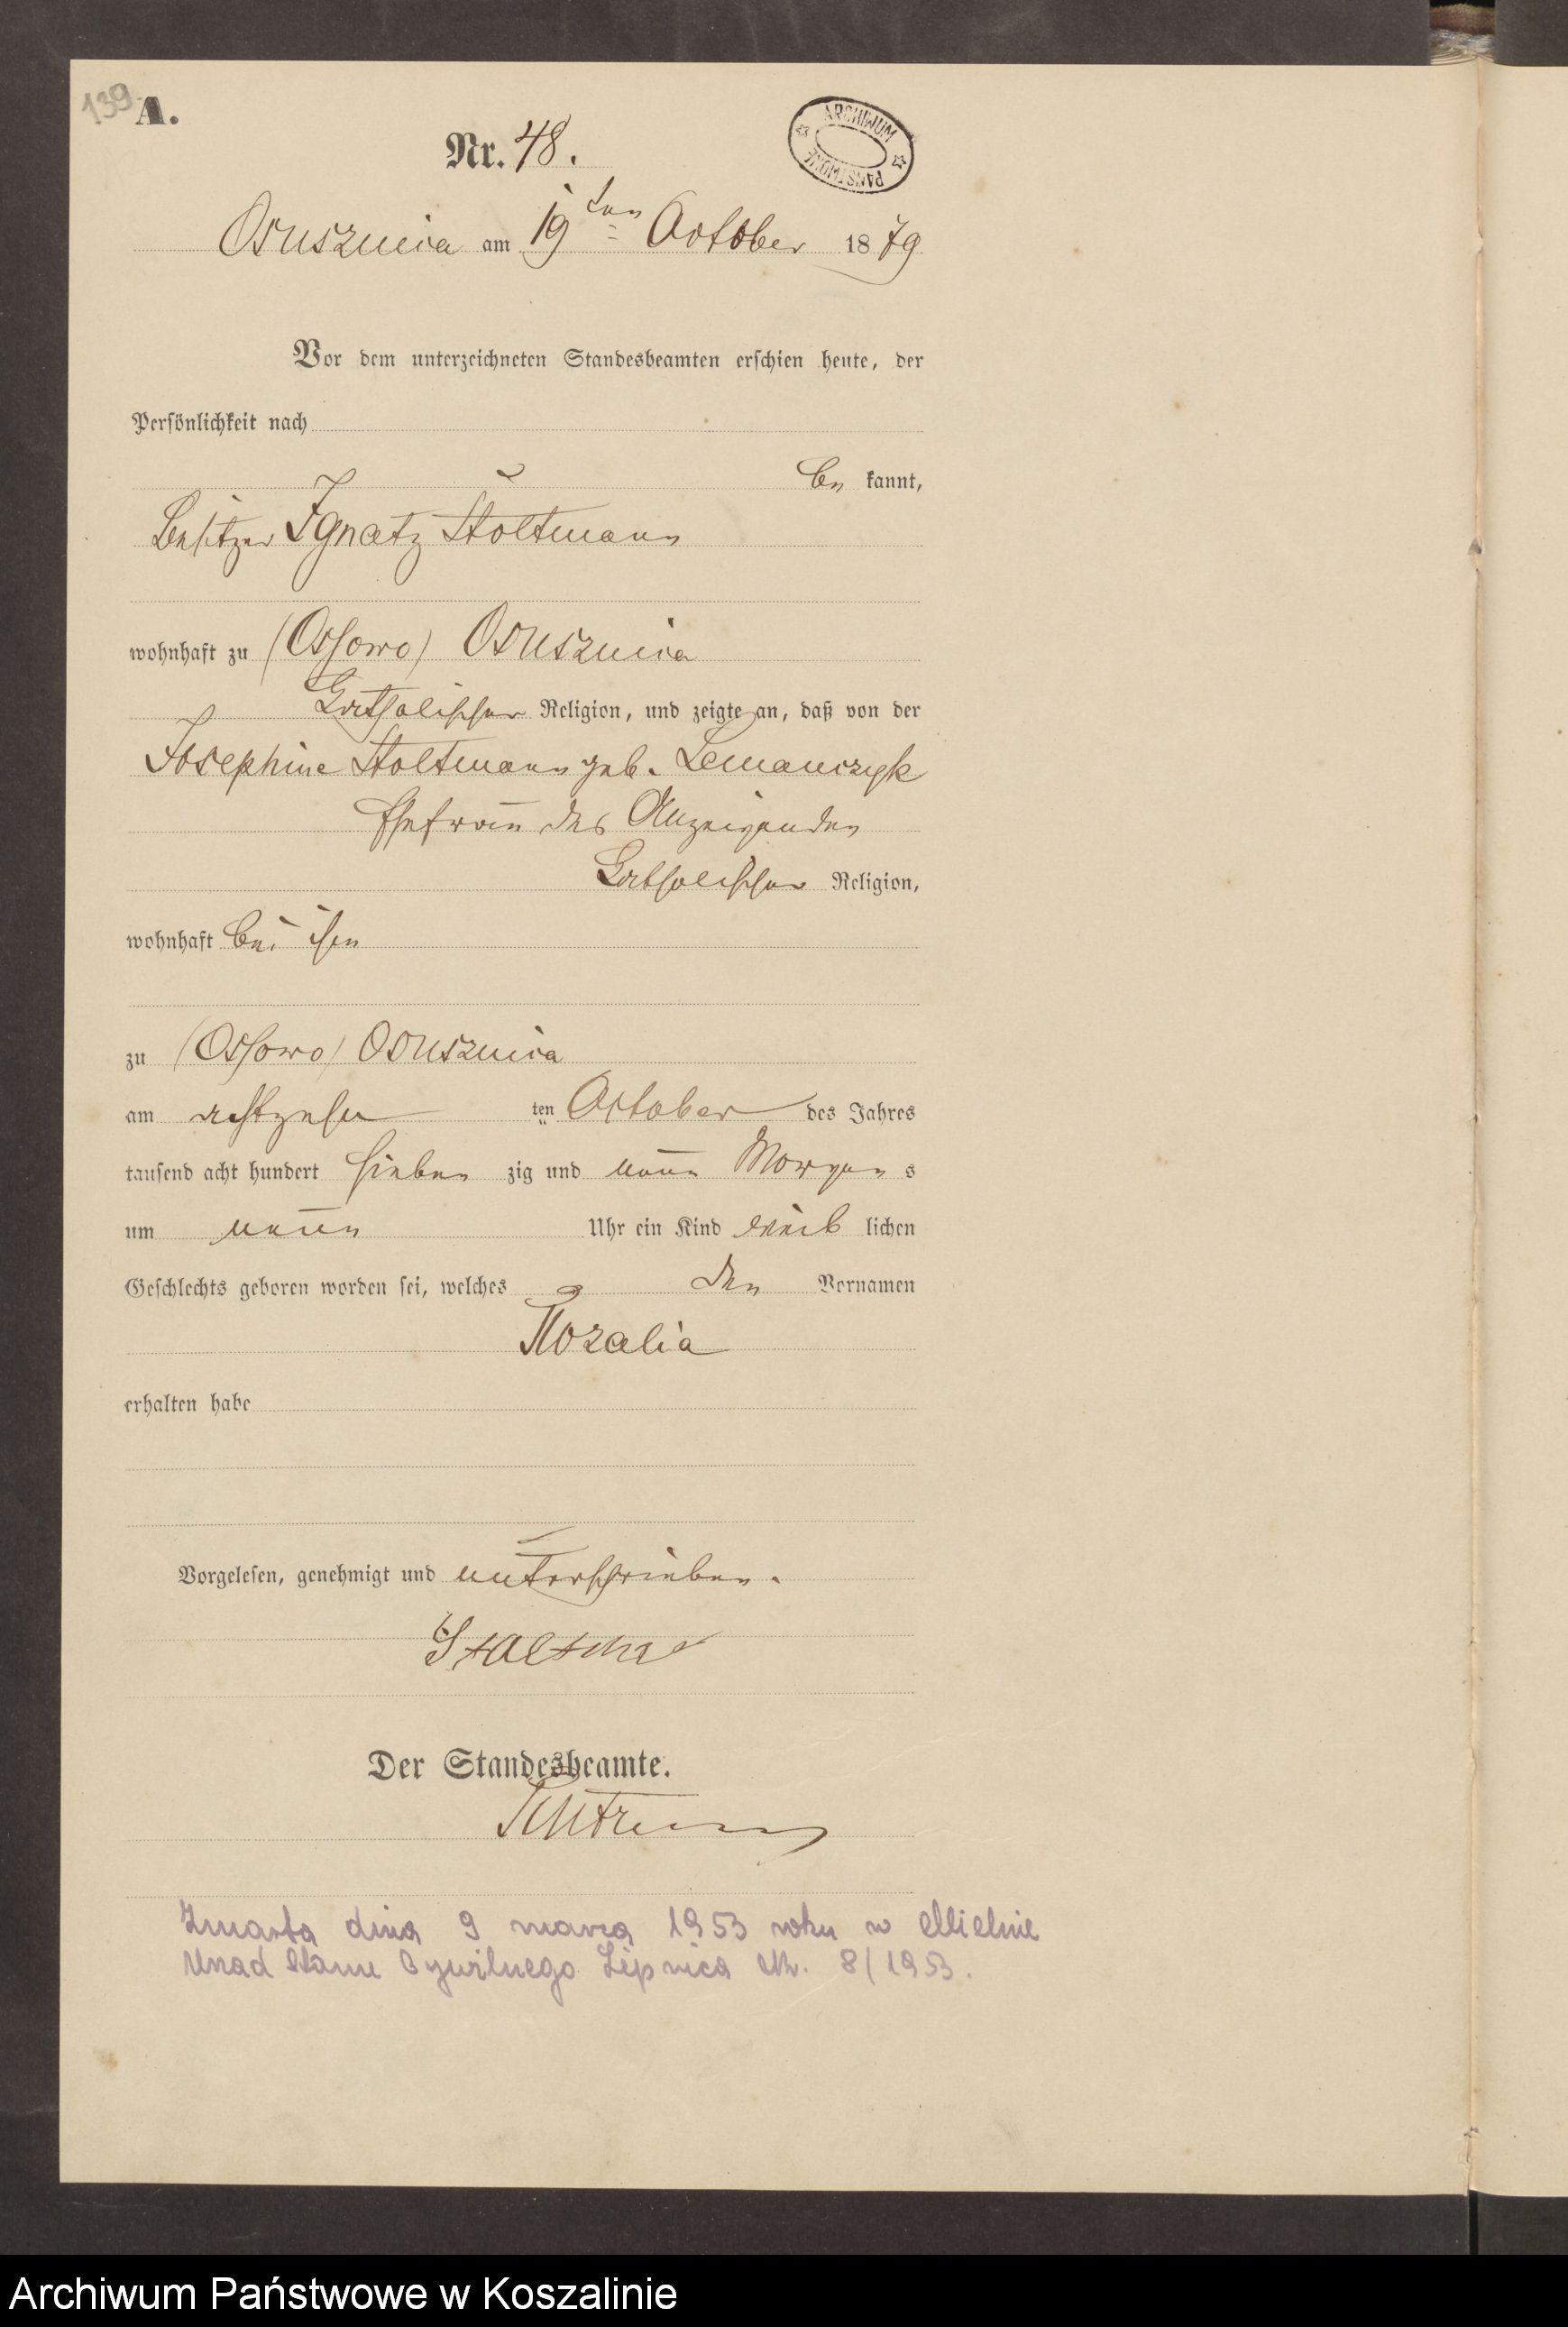 139 A.
Nr. 48.
ARCHIWUM PAŃSTWOWE
Osusznica am 19ten October 1879
Vor dem unterzeichneten Standesbeamten erschien heute, der
Persönlichkeit nach
be kannt,
Besitzer Ignatz Stoltmann
wohnhaft zu (Ossowo) Osusznica
katholischer Religion, und zeigte an, daß von der
Josephine Stoltmann geb. Lemanczyk
Ehefrau des Anzeigenden
katholischer Religion,
wohnhaft bei ihm
zu (Ossowo) Osusznica
am achtzehn ten October des Jahres
tausend acht hundert sieben zig und neun Morgens
um neun Uhr ein Kind weib lichen
Geschlechts geboren worden sei, welches den Vornamen
Rozalia
erhalten habe
Vorgelesen, genehmigt und unterschrieben.
Der Standesbeamte.
Zmarła dnia 9 marca 1953 roku w Mielnie
Urząd Stanu Cywilnego Lipnica Nr. 8/1953.
Archiwum Państwowe w Koszalinie